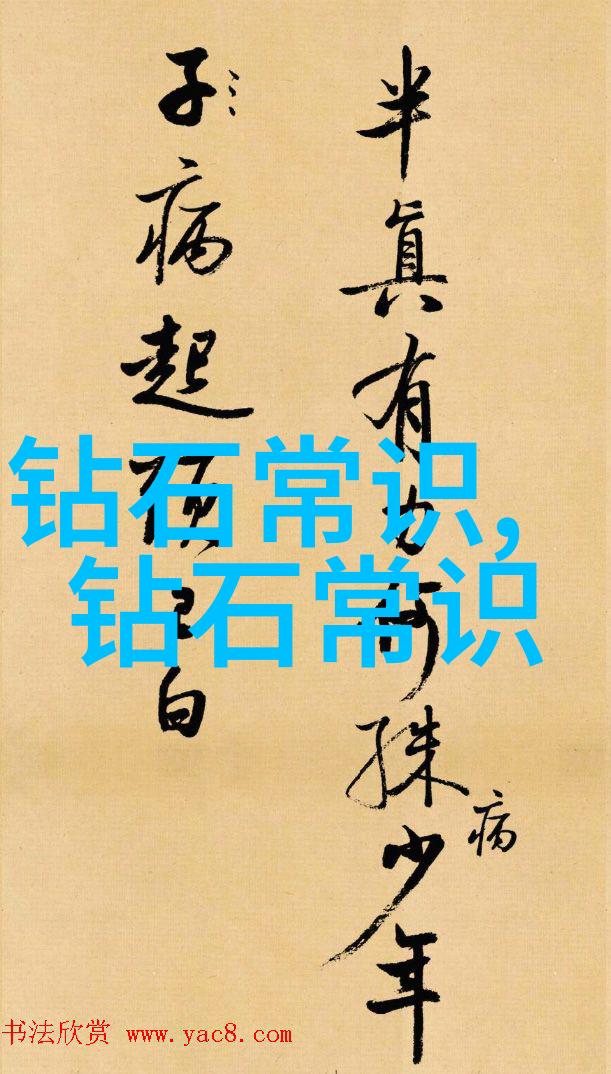 半真有力何殊少年
病
子病起已白
钻石常识,
钻石常识
书法欣赏 www.yac8.com